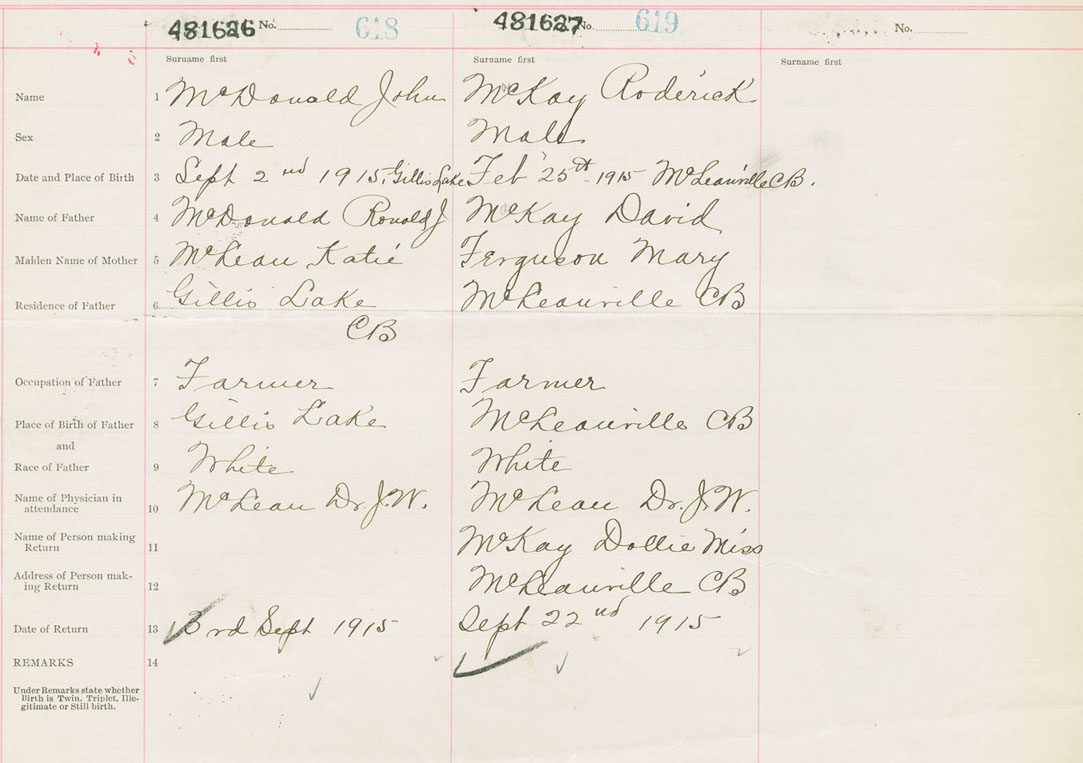 481626 No. 618 481627 No. 619 No.
Surname first Surname first Surname first
Name 1 McDonald John McKay Roderick
Sex 2 Male Male
Date and Place of Birth 3 Sept 2nd 1915, Gillis Lake Feb 25th 1915 McLeanville CB.
Name of Father 4 McDonald Ronald J McKay David
Maiden Name of Mother 5 McLean Katie Ferguson Mary
Residence of Father 6 Gillis Lake McLeanville CB
CB
Occupation of Father 7 Farmer Farmer
Place of Birth of Father 8 Gillis Lake McLeanville CB
and
Race of Father 9 White White
Name of Physician in
attendance 10 McLean Dr. J.W. McLean Dr. J.W.
Name of Person making
Return 11 McKay Dollie Miss
Address of Person mak-
ing Return 12 McLeanville CB
Date of Return 13 3rd Sept 1915 Sept 22nd 1915
REMARKS 14
Under Remarks state whether
Birth is Twin, Triplet, Ille-
gitimate or Still birth.